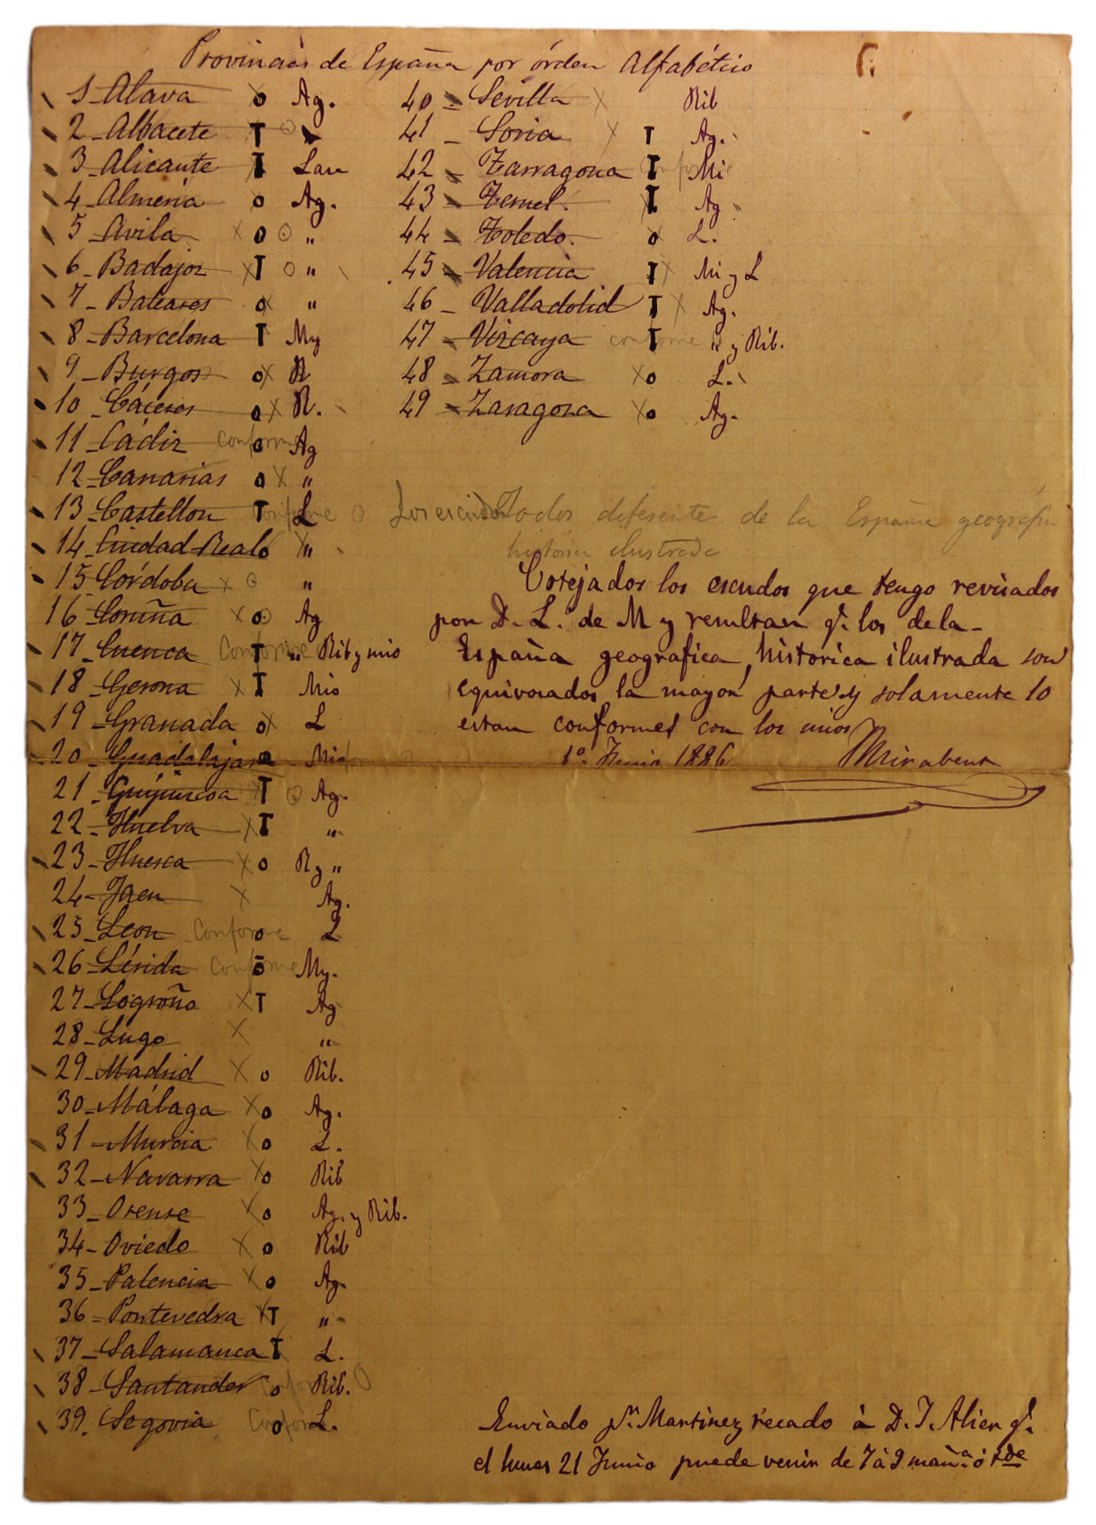 Provincias de España por órden Alfabético
1 Alava x o Ag.
2 - Albacete T
3 - Alicante T Lau
4 - Almería o Ag.
5 - Avila x o o „
6 - Badajoz x T o „
7 - Baleares o x „
8 - Barcelona T My
9 - Burgos o x R
10 - Cáceres o x R.
11 - Cádiz conforme o Ag
12 - Canarias o x „
13 - Castellon T conforme o L
14 - Ciudad-Real o x „
15 - Córdoba x o „
16 - Coruña x o Ag
17 - Cuenca Conforme T „ Rib y mio
18 - Gerona x T Mio
19 - Granada o x L
20 - Guadalajara o Mio
21 - Guipúzcoa T o Ag.
22 - Huelva x T „
23 - Huesca x o R y „
24 - Jaen x Ag.
25 - Leon Conforme o L
26 - Lérida Conforme o My.
27 - Logroño x T Ag
28 - Lugo x „
29 - Madrid x o Rib.
30 - Málaga x o Ag.
31 - Murcia x o L.
32 - Navarra x o Rib
33 - Orense x o Ag. y Rib.
34 - Oviedo x o Rib
35 - Palencia x o Ag.
36 - Pontevedra x T „
37 - Salamanca T L.
38 - Santander conforme o Rib. o
39. Segovia Conforme o L.
40 - Sevilla x Rib
41 - Soria x T Ag.
42 - Tarragona T conforme Mi
43 - Teruel. x T Ag
44 - Toledo. x o L.
45 - Valencia T x Mi y L
46 - Valladolid T x Ag.
47 - Vizcaya conforme T „ y Rib.
48 - Zamora x o L.
49 - Zaragoza x o Ag.
Los escudos Todos diferente de la España geografica
historia ilustrada
Cotejados los escudos que tengo revisados
por D. L. de M y resultan q.e los de la
España geografica, historica ilustrada son
equivocados la mayor parte y solamente 10
estan conformes con los mios
1º. Junio 1886 Mirabent
Enviado p.r Martinez recado á D. J. Alier q.e
el lunes 21 Junio puede venir de 7 á 9 mañ.a ó tde